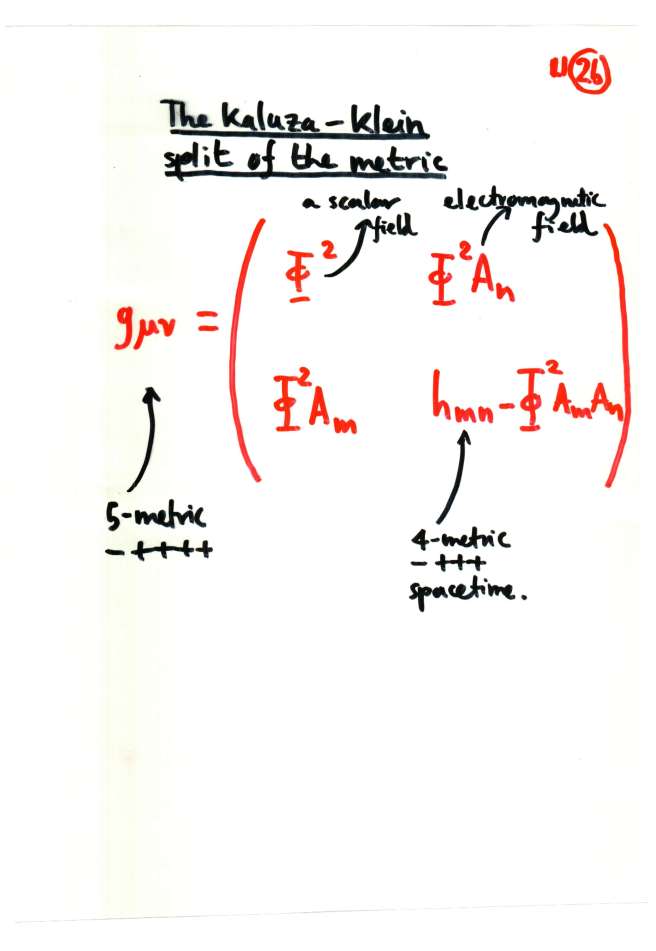 U 26
The Kaluza-Klein
split of the metric
a scalar field
electromagnetic field
gμν = ( Φ² Φ²Aₙ
Φ²Aₘ hₘₙ - Φ²AₘAₙ )
5-metric
- + + + +
4-metric
- + + +
spacetime.